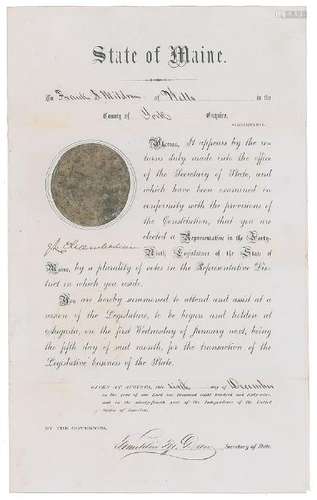 State of Maine.
To Frank A of Wells in the
County of York Esquire,
GREETING.
Whereas, It appears by the re-
turns duly made into the office
of the Secretary of State, and
which have been examined in
conformity with the provisions of
the Constitution, that you are
elected a Representative in the Forty-
Ninth Legislature of the State of
Maine, by a plurality of votes in the Representative Dis-
trict in which you reside.
You are hereby summoned to attend and assist at a
session of the Legislature, to be begun and holden at
Augusta, on the first Wednesday of January next, being
the fifth day of said month, for the transaction of the
Legislative business of the State.
GIVEN AT AUGUSTA, this day of December
in the year of our Lord one thousand eight hundred and sixty-nine,
and in the ninety-fourth year of the Independence of the United
States of America.
BY THE GOVERNOR,
Franklin M. Drew Secretary of State.